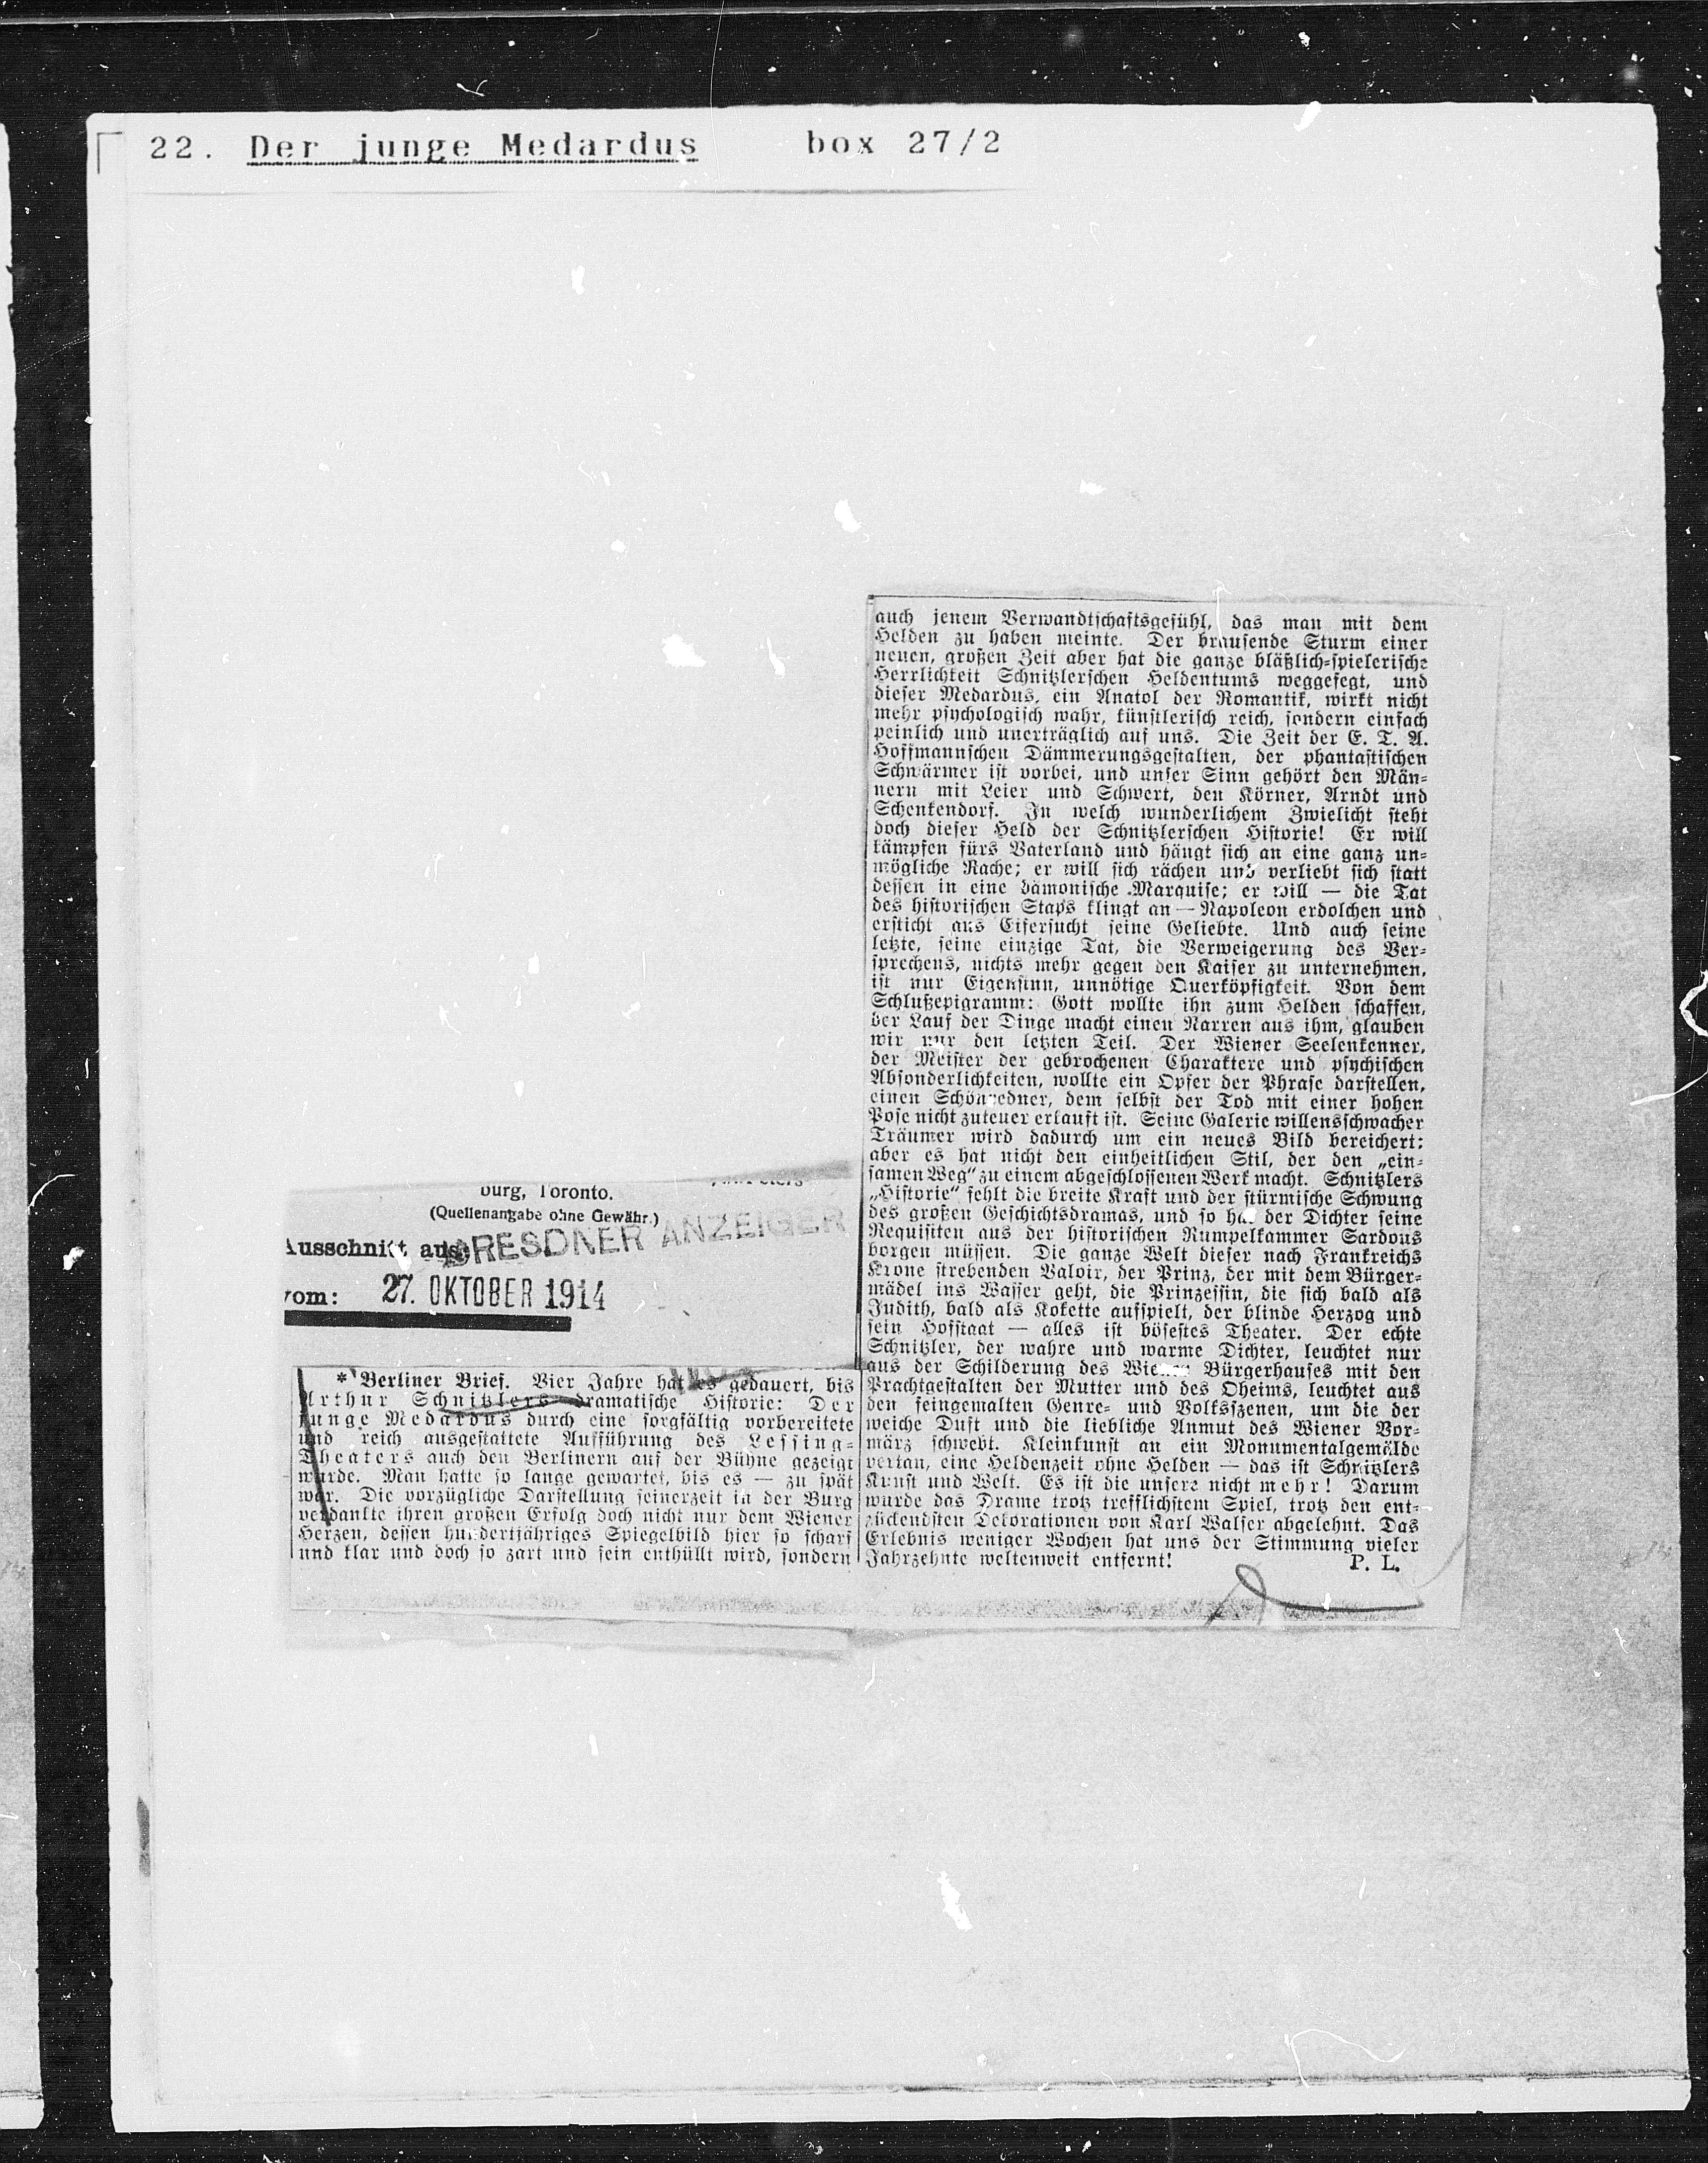 22. Der junge Medardus box 27/2
burg, Toronto.
(Quellenangabe ohne Gewähr.)
Ausschnitt aus: DRESDNER ANZEIGER
vom: 27. OKTOBER 1914
* Berliner Brief. Vier Jahre hat es gedauert, bis
Arthur Schnitzlers dramatische Historie: Der
junge Medardus durch eine sorgfältig vorbereitete
und reich ausgestattete Aufführung des Lessing-
Theaters auch den Berlinern auf der Bühne gezeigt
wurde. Man hatte so lange gewartet, bis es — zu spät
war. Die vorzügliche Darstellung seinerzeit in der Burg
verdankte ihren großen Erfolg doch nicht nur dem Wiener
Herzen, dessen hundertjähriges Spiegelbild hier so scharf
und klar und doch so zart und fein enthüllt wird, sondern
auch jenem Verwandtschaftsgefühl, das man mit dem
Helden zu haben meinte. Der brausende Sturm einer
neuen, großen Zeit aber hat die ganze bläßlich-spielerische
Herrlichkeit Schnitzlerschen Heldentums weggefegt, und
dieser Medardus, ein Anatol der Romantik, wirkt nicht
mehr psychologisch wahr, künstlerisch reich, sondern einfach
peinlich und unerträglich auf uns. Die Zeit der E. T. A.
Hoffmannschen Dämmerungsgestalten, der phantastischen
Schwärmer ist vorbei, und unser Sinn gehört den Män-
nern mit Leier und Schwert, den Körner, Arndt und
Schenkendorf. In welch wunderlichem Zwielicht steht
doch dieser Held der Schnitzlerschen Historie! Er will
kämpfen fürs Vaterland und hängt sich an eine ganz un-
mögliche Rache; er will sich rächen und verliebt sich statt
dessen in eine dämonische Marquise; er will — die Tat
des historischen Staps klingt an — Napoleon erdolchen und
ersticht aus Eifersucht seine Geliebte. Und auch seine
letzte, seine einzige Tat, die Verweigerung des Ver-
sprechens, nichts mehr gegen den Kaiser zu unternehmen,
ist nur Eigensinn, unnötige Querköpfigkeit. Von dem
Schlußepigramm: Gott wollte ihn zum Helden schaffen,
der Lauf der Dinge macht einen Narren aus ihm, glauben
wir nur den letzten Teil. Der Wiener Seelenkenner,
der Meister der gebrochenen Charaktere und psychischen
Absonderlichkeiten, wollte ein Opfer der Phrase darstellen,
einen Schönredner, dem selbst der Tod mit einer hohen
Pose nicht zuteuer erkauft ist. Seine Galerie willensschwacher
Träumer wird dadurch um ein neues Bild bereichert:
aber es hat nicht den einheitlichen Stil, der den „ein-
samen Weg“ zu einem abgeschlossenen Werk macht. Schnitzlers
„Historie“ fehlt die breite Kraft und der stürmische Schwung
des großen Geschichtsdramas, und so hat der Dichter seine
Requisiten aus der historischen Rumpelkammer Sardous
borgen müssen. Die ganze Welt dieser nach Frankreichs
Krone strebenden Valoir, der Prinz, der mit dem Bürger-
mädel ins Wasser geht, die Prinzessin, die sich bald als
Judith, bald als Kokette aufspielt, der blinde Herzog und
sein Hofstaat — alles ist bösestes Theater. Der echte
Schnitzler, der wahre und warme Dichter, leuchtet nur
aus der Schilderung des Wiener Bürgerhauses mit den
Prachtgestalten der Mutter und des Oheims, leuchtet aus
den feingemalten Genre- und Volksszenen, um die der
weiche Duft und die liebliche Anmut des Wiener Vor-
märz schwebt. Kleinkunst an ein Monumentalgemälde
vertan, eine Heldenzeit ohne Helden — das ist Schnitzlers
Kunst und Welt. Es ist die unsere nicht mehr! Darum
wurde das Drame trotz trefflichstem Spiel, trotz den ent-
zückendsten Dekorationen von Karl Walser abgelehnt. Das
Erlebnis weniger Wochen hat uns der Stimmung vieler
Jahrzehnte weltenweit entfernt! P. L.